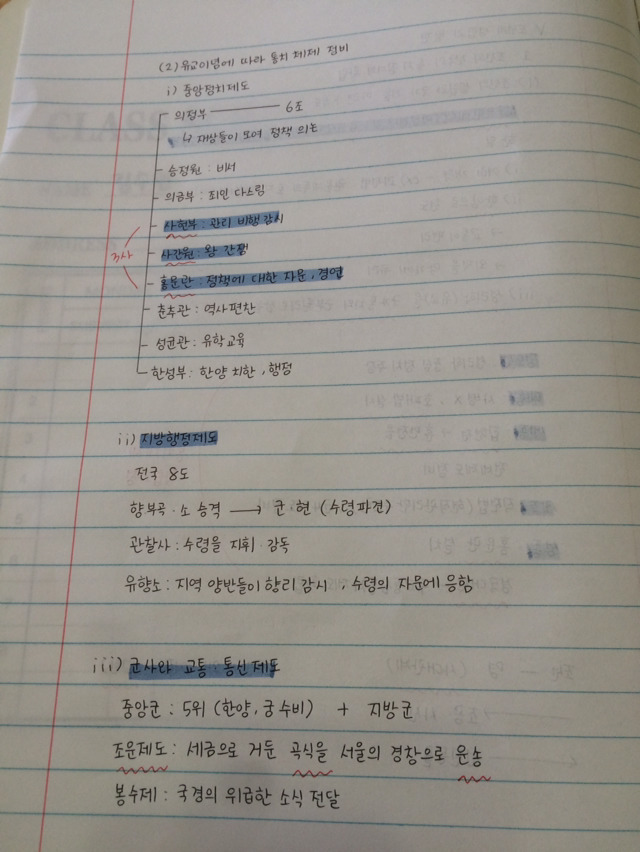 (2) 유교이념에 따라 통치 체제 정비
i) 중앙정치제도
의정부 ——— 6조
↳ 재상들이 모여 정책 의논
승정원 : 비서
의금부 : 죄인 다스림
사헌부 : 관리 비행감시
3사
사간원 : 왕 간쟁
홍문관 : 정책에 대한 자문, 경연
춘추관 : 역사편찬
성균관 : 유학교육
한성부 : 한양 치안, 행정
ii) 지방행정제도
전국 8도
향부곡·소 승격 → 군·현 (수령파견)
관찰사 : 수령을 지휘·감독
유향소 : 지역 양반들이 향리 감시, 수령의 자문에 응함
iii) 군사와 교통·통신제도
중앙군 : 5위 (한양, 궁수비) + 지방군
조운제도 : 세금으로 거둔 곡식을 서울의 경창으로 운송
봉수제 : 국경의 위급한 소식 전달